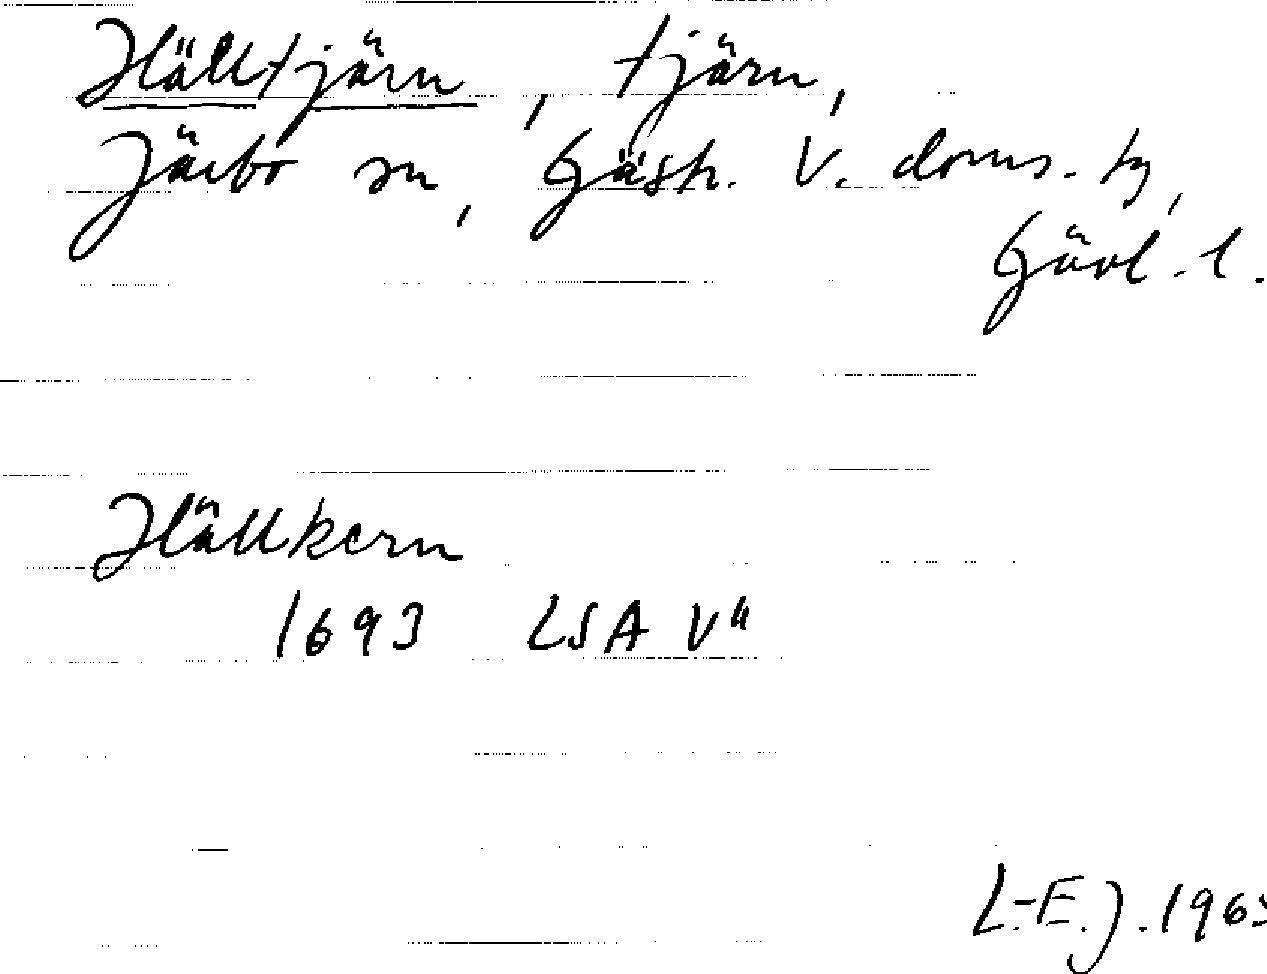 Hälltjärn, tjärn,
Järbo sn, Gästr. V. doms. hg,
Gävl. l.
Hällkern
1693 LSA V4
L.-E. J. 196